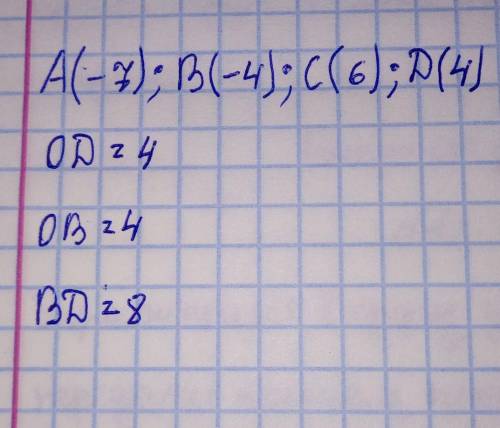 A(-7); B(-4); C(6); D(4)
OD = 4
OB = 4
BD = 8